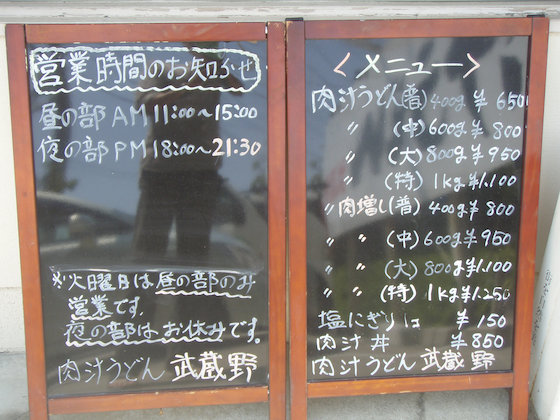 営業時間のお知らせ
昼の部 AM 11:00~15:00
夜の部 PM 18:00~21:30
※火曜日は昼の部のみ
営業です。
夜の部はお休みです。
肉汁うどん 武蔵野
<メニュー>
肉汁うどん(普) 400g ¥650
〃 (中) 600g ¥800
〃 (大) 800g ¥950
〃 (特) 1kg ¥1.100
〃肉増し(普) 400g ¥800
〃 〃 (中) 600g ¥950
〃 〃 (大) 800g ¥1.100
〃 〃 (特) 1kg ¥1.250
塩にぎり1コ ¥150
肉汁丼 ¥850
肉汁うどん 武蔵野